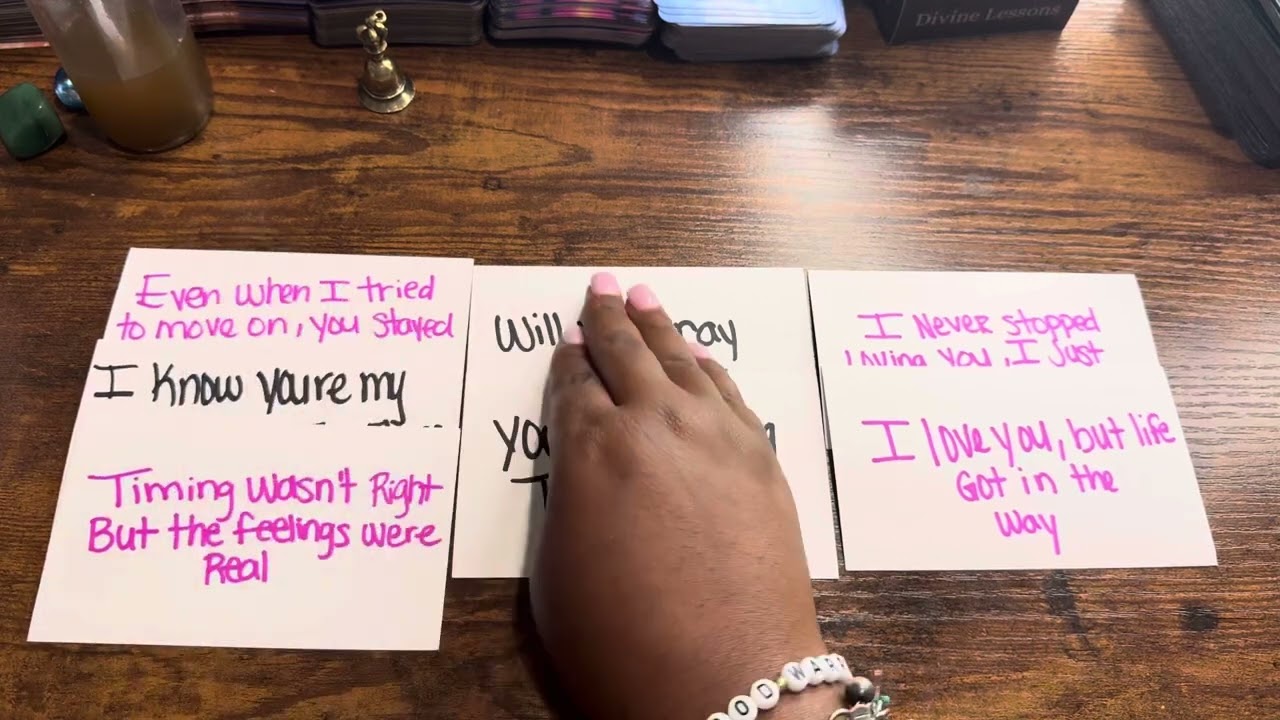 Divine Lessons
Even when I tried
to move on, you stayed
I know you're my
Timing wasn't Right
But the feelings were
Real
Will
I Never stopped
you, I just
I love you, but life
Got in the
way
OOD WAR